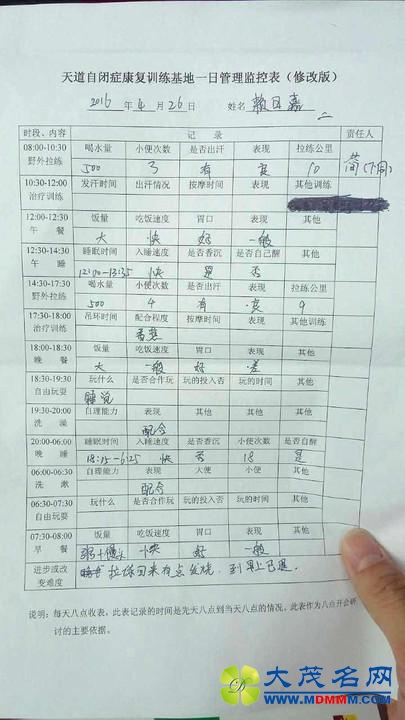 天道自闭症康复训练基地一日管理监控表（修改版）
2016 年 4 月 26 日 姓名 赖日嘉
时段、内容 记 录 责任人
08:00-10:30 喝水量 小便次数 是否出汗 表现 拉练公里
野外拉练 500 3 有 良 10 简(下周)
10:30-12:00 发汗时间 出汗情况 按摩时间 表现 其他训练
治疗训练
12:00-12:30 饭量 吃饭速度 胃口 表现 其他
午 餐 大 快 好 一般
12:30-14:30 睡眠时间 入睡速度 是否香沉 是否自己醒
午 睡 12:00-13:35 快 是 否
14:30-17:30 喝水量 小便次数 是否出汗 表现 拉练公里
野外拉练 500 4 有 良 9
17:30-18:00 吊环时间 配合程度 按摩时间 表现 其他训练
治疗训练 香蕉
18:00-18:30 饭量 吃饭速度 胃口 表现 其他
晚 餐 大 一般 好 差
18:30-19:30 玩什么 是否合作玩 玩的投入否 玩的时间 其他
自由玩耍 睡觉
19:30-20:00 自理能力 表现 其他 其他 其他
洗 澡 配合
20:00-06:00 睡眠时间 入睡速度 是否香沉 小便次数 是否自醒
晚 睡 18:15-6:25 快 否 18 是
06:00-06:30 自理能力 表现 大便 小便 其他
洗 漱 配合
06:30-07:30 玩什么 是否合作玩 玩的投入否 玩的时间 其他
自由玩耍
07:30-08:00 饭量 吃饭速度 胃口 表现 其他
早 餐 粥+馒头 快 好 一般
进步或改 拉练回来有点发烧，到早上已退。
变难度
说明：每天八点收表，此表记录的时间是先天八点到当天八点的情况，此表作为八点开会研
讨的主要依据。
大茂名网
WWW.MDMMM.COM